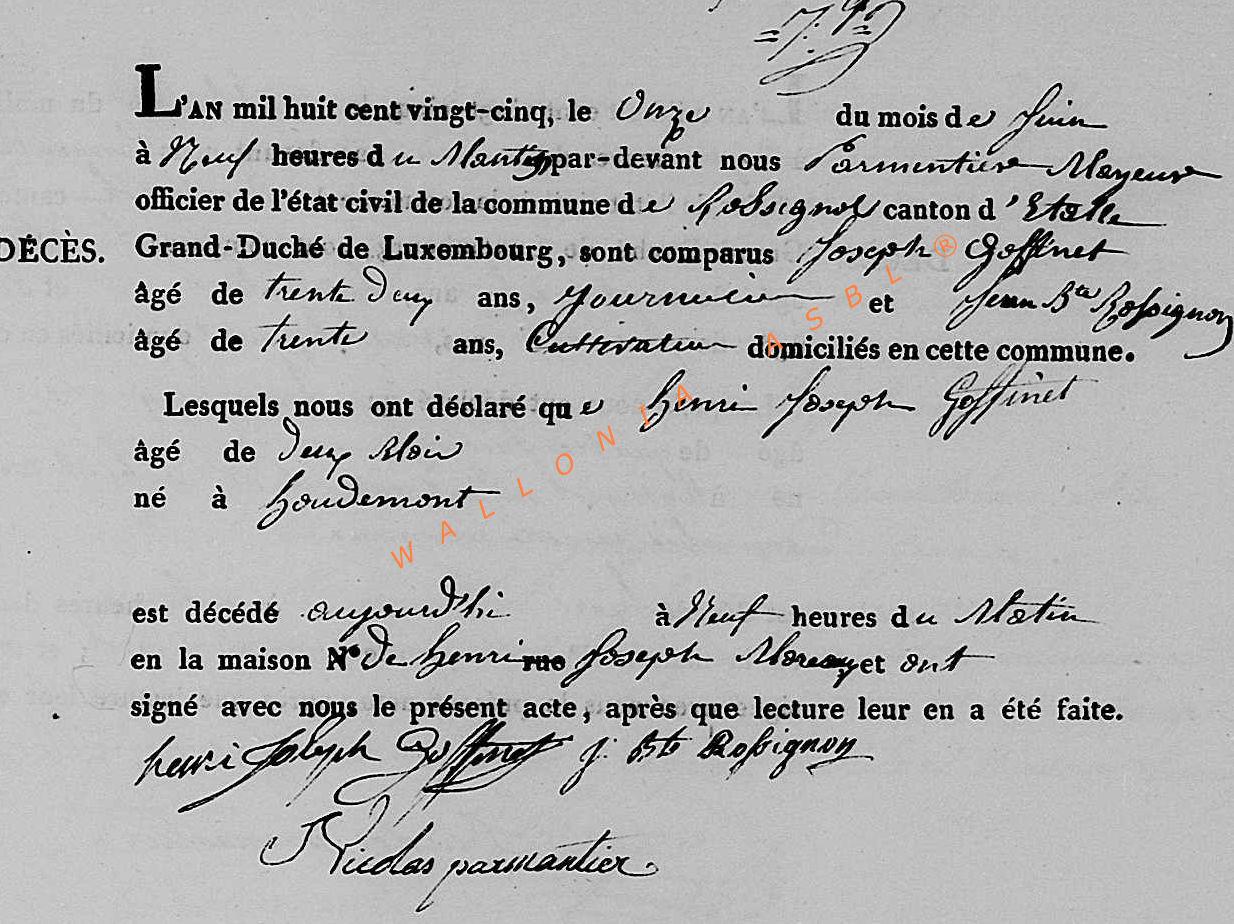 =7.=
L'AN mil huit cent vingt-cinq, le Onze du mois de Juin
à Neuf heures du Matin par-devant nous Parmentier Mayeur
officier de l'état civil de la commune de Rossignol canton d'Etalle
DÉCÈS. Grand-Duché de Luxembourg, sont comparus Joseph Goffinet
âgé de trente deux ans, Journalier et Jean Bte Rossignon
âgé de trente ans, Cultivateur domiciliés en cette commune.
Lesquels nous ont déclaré que henri Joseph Goffinet
âgé de deux Mois
né à houdemont
est décédé aujourd'hui à Neuf heures du Matin
en la maison No de henri rue Joseph et ont
signé avec nous le présent acte, après que lecture leur en a été faite.
henri Joseph Goffinet J. Bte Rossignon
Nicolas parmantier
WALLONIA ASBL ®